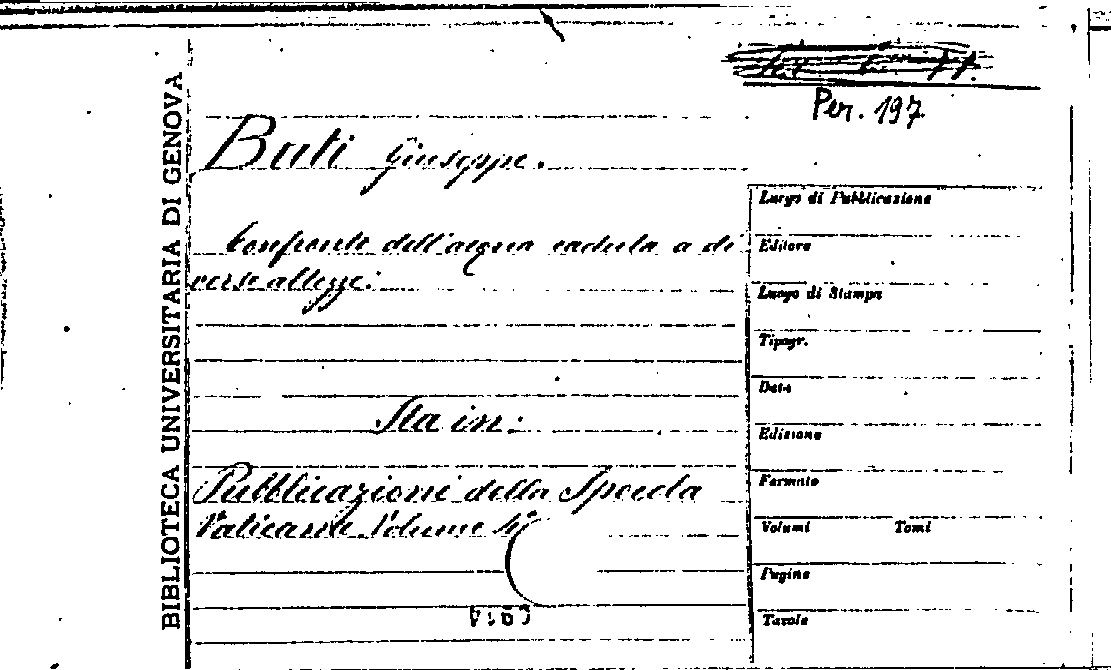 Per. 197
BIBLIOTECA UNIVERSITARIA DI GENOVA
Buti Giuseppe.
Confronto dell'acqua caduta a di
verse altezze.
Sta in:
Pubblicazioni della Specola
Vaticana. Volume 4°
Luogo di Pubblicazione
Editore
Luogo di Stampa
Tipogr.
Data
Edizione
Formato
Volumi Tomi
Pagine
Tavole